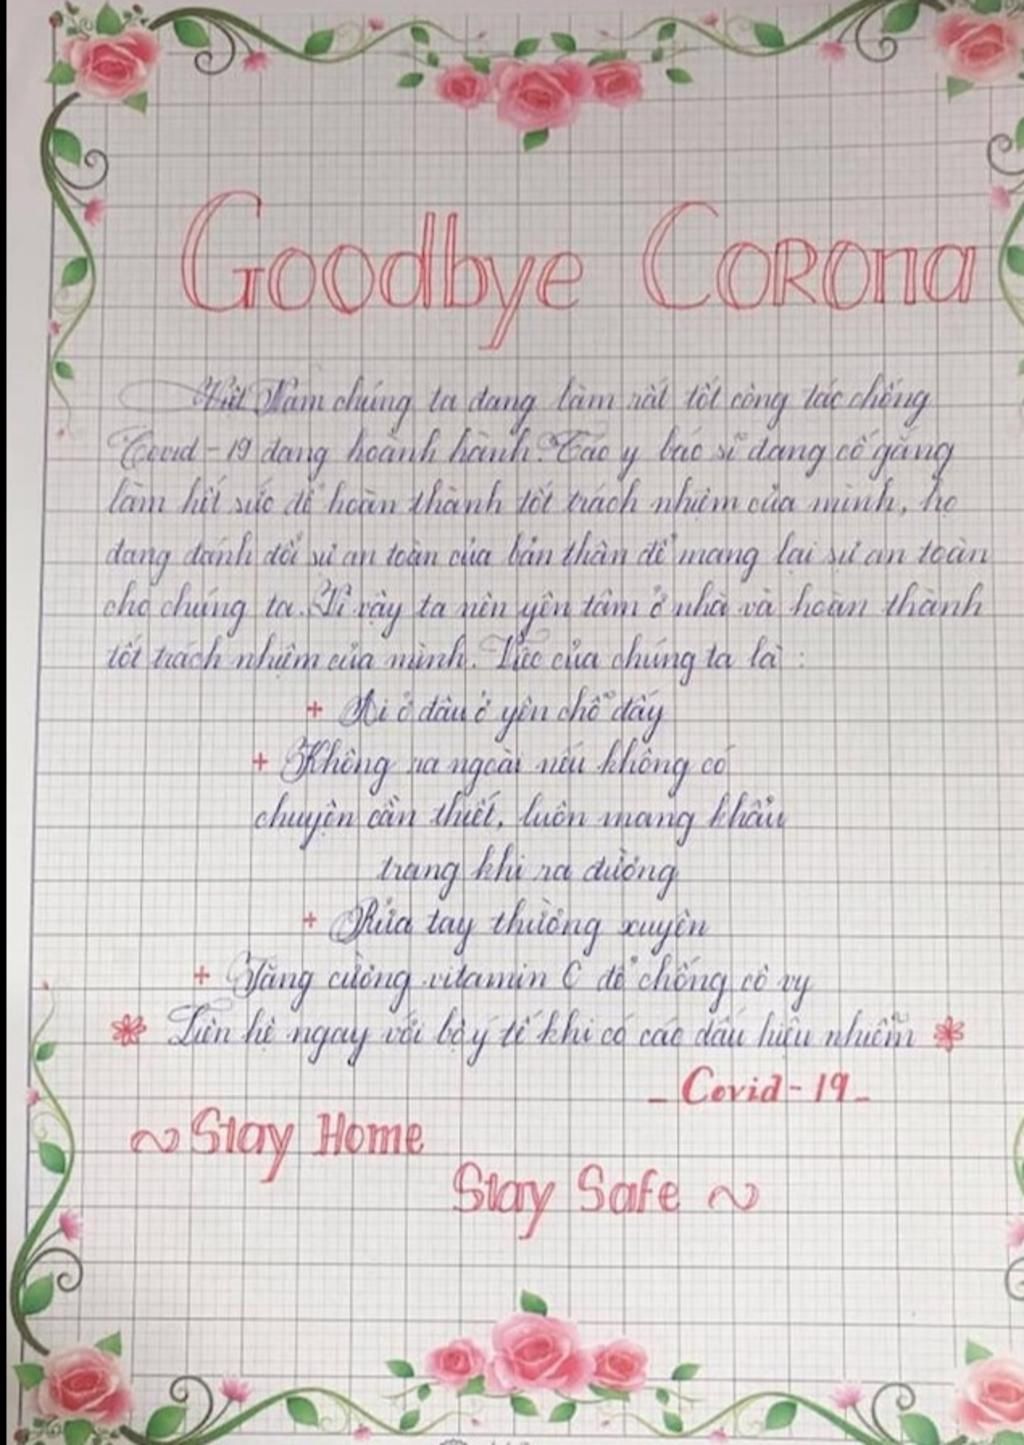 Goodbye Corona
Việt Nam chúng ta đang làm rất tốt công tác chống
Covid - 19 đang hoành hành. Các y bác sĩ đang cố gắng
làm hết sức để hoàn thành tốt trách nhiệm của mình, họ
đang đánh đổi sự an toàn của bản thân để mang lại sự an toàn
cho chúng ta. Vì vậy ta nên yên tâm ở nhà và hoàn thành
tốt trách nhiệm của mình. Việc của chúng ta là :
+ Ai ở đâu ở yên chỗ đấy
+ Không ra ngoài nếu không có
chuyện cần thiết, luôn mang khẩu
trang khi ra đường
+ Rửa tay thường xuyên
+ Tăng cường vitamin C để chống cô vy
Liên hệ ngay với bộ y tế khi có các dấu hiệu nhiễm
- Covid - 19 -
~ Stay Home
Stay Safe ~